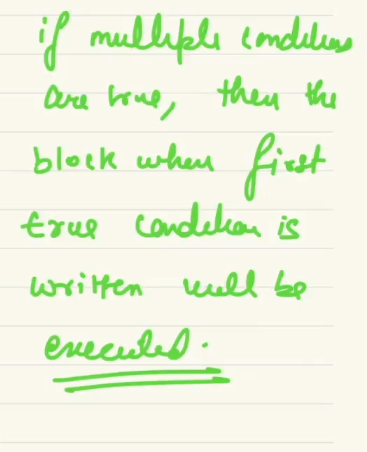 if multiple conditions
are true, then the
block when first
true condition is
written will be
executed.